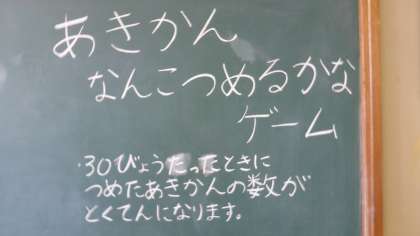 あきかん
なんこつめるかな
ゲーム
・30びょうたったときに
つめたあきかんの数が
とくてんになります。